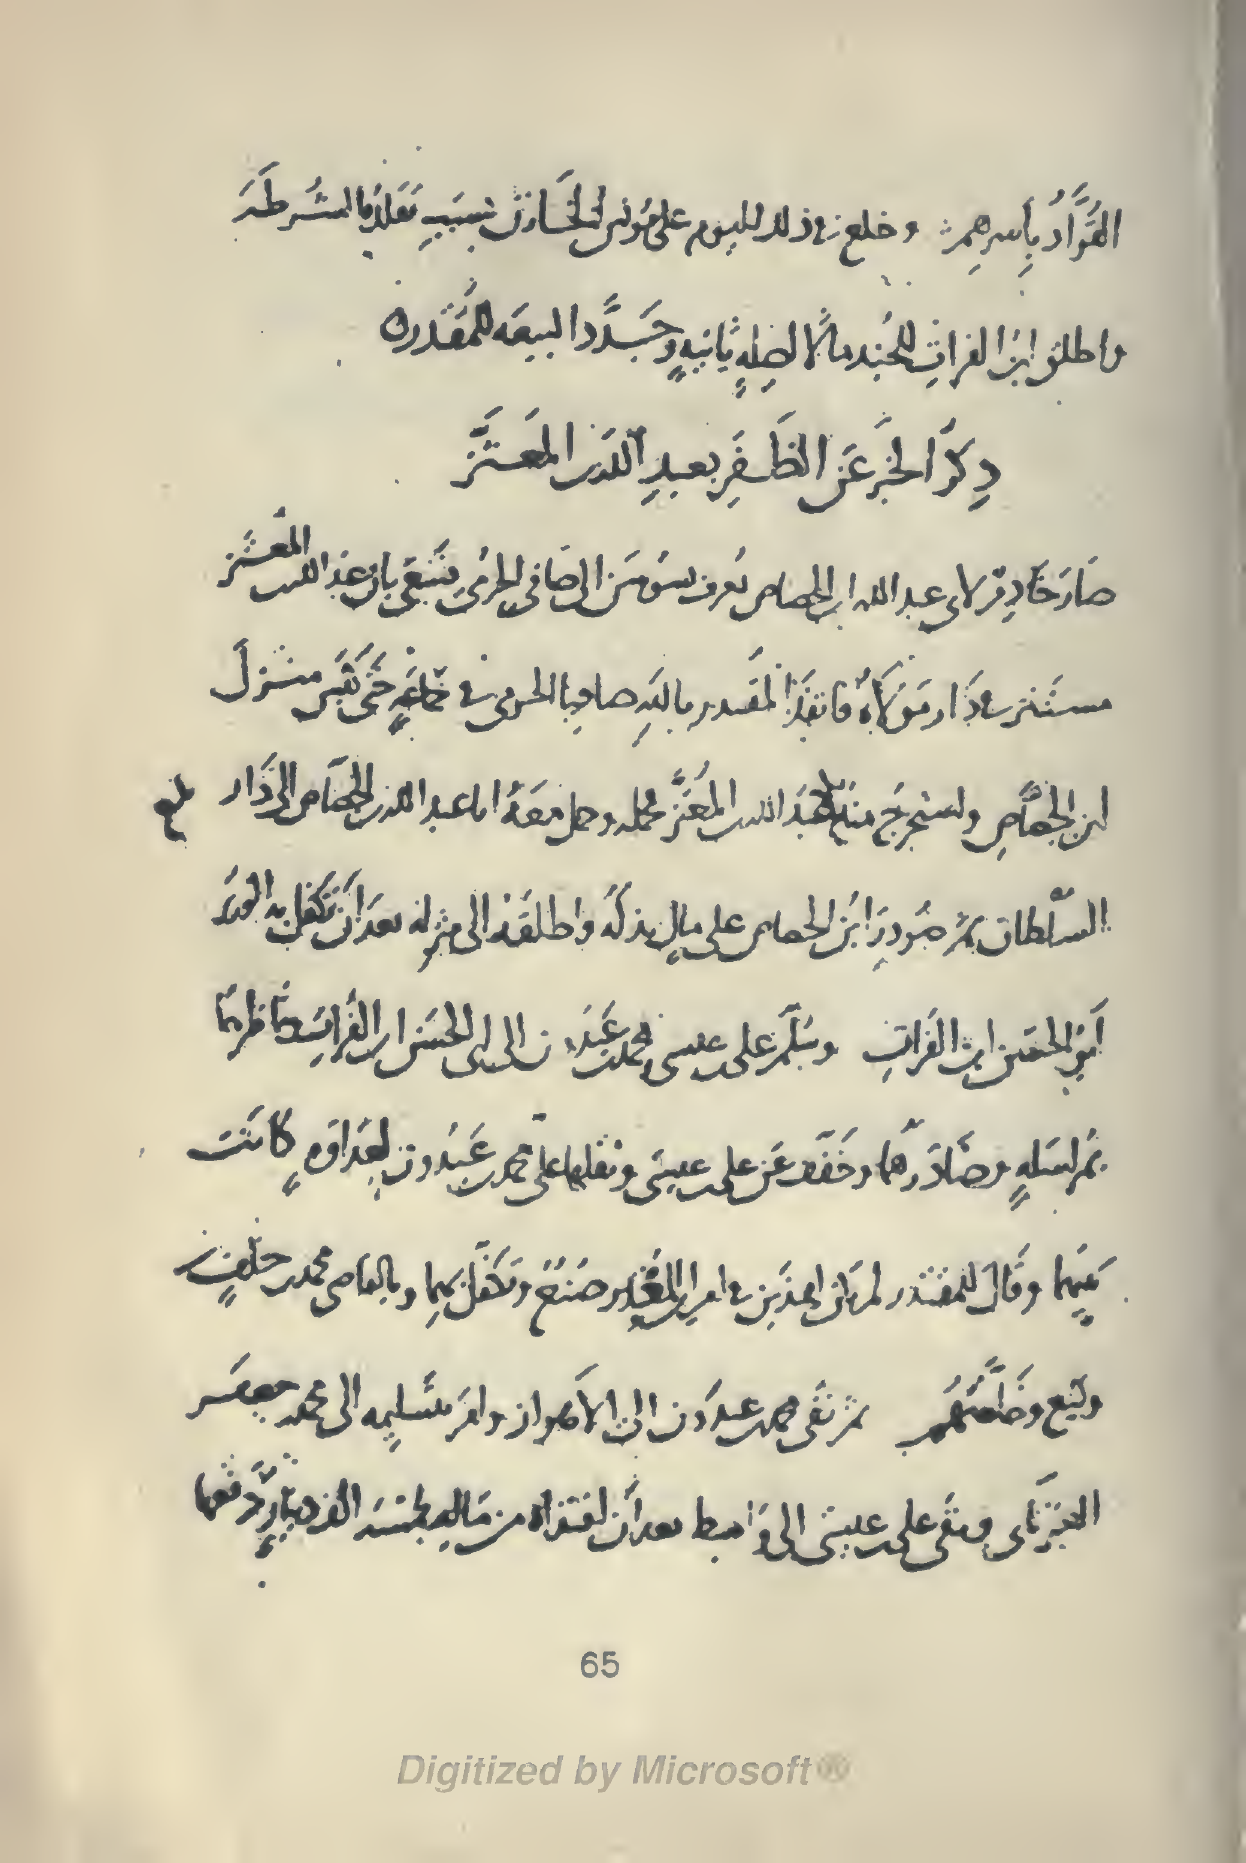 القُوَّادُ بِأَسرِهِم وخلع في ذلك اليوم على مؤنس الخَازن بسَببِ تقلّده الشُرطَة
واطلق ابنُ الفراتِ للجُند مالًا لصِلةٍ ثانيةٍ وجَدَّد البيعه للمُقتدر
ذِكرُ الخَبَر عَن الظَفَرِ بعبدِ الله بن المعتَزّ
صَارَ خَادِمٌ لابى عبد الله ابن الجصاص يُعرف بسَوسَن الى صَافى الحُرمى فسَعَى بان عبد الله بن المُعتَز
مستَتر فى دَار مَولاهُ فانفَذَ المقتدر باللهِ صافيا الحرمى فى جَمَاعَةٍ حَتّى كبَس منزلَ
ابن الجصّاصِ واستخرجَ منه عَبدَ الله بن المُعتزّ فحمله وحمل معَهُ ابا عبد الله بن الجصّاص الى دَار
السّلطان ثم صُودِرَ ابنُ الجصاص على مالٍ بذلَهُ واطلقَهُ الى منزله بعد اَن تكفّل به الوزير
اَبو الحسَن ابن الفَراتِ وسُلّم على بن عيسى ومحمد بن عَبدون الى ابى الحسَن ابن الفُراتِ فنَاظرهُما
ثم لسَلهٍ وصَادَرهُما وخَفّفَ عَن على بن عيسَى ونقلها على محمد بن عَبدُون لعداوَةٍ كانَت
بَينهما وقالَ للمقتدر لم يكن لهذَين فى امر ابن المُعتز صُنعٌ وتكفّل بهما وبالقاضى محمد بن خلَفٍ
وكيع وخلّصَهُم ثم نفَى محمد بن عبدُون الى الاهواز وامَر بتسليمِه الى محمد بن جعفَر
العَبَرتاى ونفَى على بن عيسَى الى وَاسط بعد اَن افتدَاه من مَاله بخمسَة الف دينارٍ دفعها
65
Digitized by Microsoft®